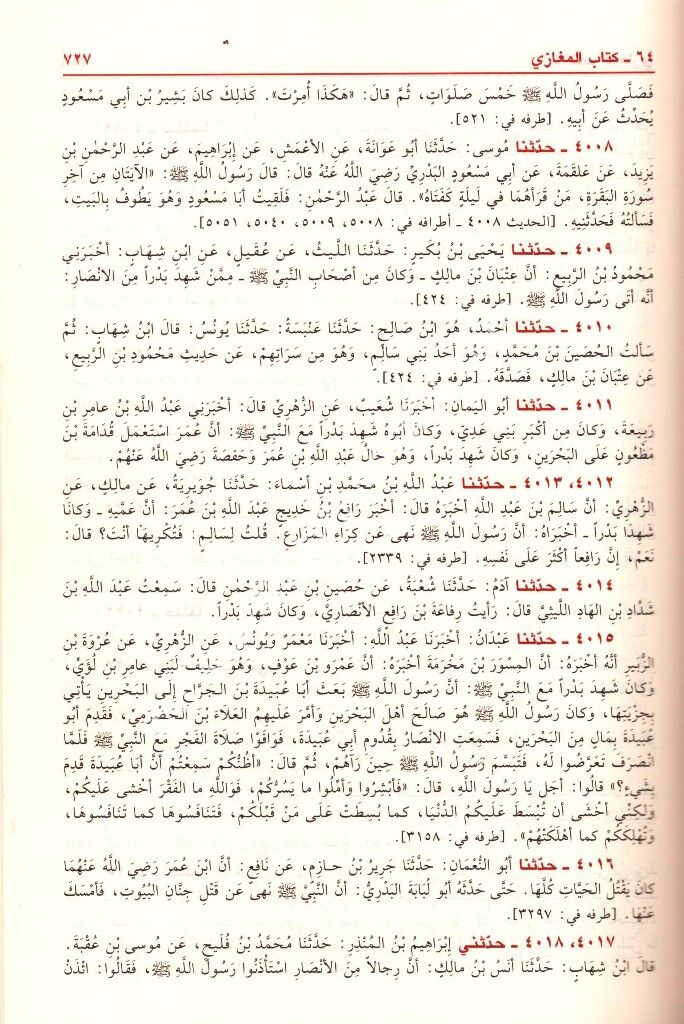 ٦٤ - كتاب المغازي ٧٢٧
فَصَلَّى رَسُولُ اللَّهِ ﷺ خَمْسَ صَلَوَاتٍ، ثُمَّ قالَ: «هَكَذَا أُمِرْتَ». كَذلِكَ كانَ بَشِيرُ بْنُ أبي مَسْعُودٍ
يُحَدِّثُ عَنْ أبِيهِ. [طرفه في: ٥٢١].
٤٠٠٨ - حدّثنا مُوسى: حَدَّثَنَا أبُو عَوَانَةَ، عَنِ الأعْمَشِ، عَن إبْرَاهِيمَ، عَن عَبْدِ الرَّحْمٰنِ بْنِ
يَزِيدَ، عَن عَلْقَمَةَ، عَن أبي مَسْعُودٍ البَدْرِيِّ رَضِيَ اللَّهُ عَنْهُ قالَ: قالَ رَسُولُ اللَّهِ ﷺ: «الآيَتَانِ مِن آخِرِ
سُورَةِ البَقَرَةِ، مَنْ قَرَأهُمَا في لَيلَةٍ كَفَتَاهُ». قالَ عَبْدُ الرَّحْمٰنِ: فَلَقِيتُ أبَا مَسْعُودٍ وَهُوَ يَطُوفُ بِالبَيتِ،
فَسَألتُهُ فَحَدَّثَنِيهِ. [الحديث ٤٠٠٨ - أطرافه في: ٥٠٠٨، ٥٠٠٩، ٥٠٤٠، ٥٠٥١].
٤٠٠٩ - حدّثنا يَحْيَى بْنُ بُكَيرٍ: حَدَّثَنَا اللَّيثُ، عَن عُقَيلٍ، عَنِ ابْنِ شِهَابٍ: أخْبَرَنِي
مَحْمُودُ بْنُ الرَّبِيعِ: أنَّ عِتْبَانَ بْنَ مالِكٍ - وَكانَ مِن أصْحَابِ النَّبِيِّ ﷺ - مِمَّنْ شَهِدَ بَدْراً مِنَ الأنْصَارِ:
أنَّه أتَى رَسُولَ اللَّهِ ﷺ. [طرفه في: ٤٢٤].
٤٠١٠ - حدّثنا أحْمَدُ، هُوَ ابْنُ صَالِحٍ: حَدَّثَنَا عَنْبَسَةُ: حَدَّثَنَا يُونُسُ: قالَ ابْنُ شِهَابٍ: ثُمَّ
سَألتُ الحُصَينَ بْنَ مُحَمَّدٍ، وَهُوَ أحَدُ بَنِي سَالِمٍ، وَهُوَ مِن سَرَاتِهِمْ، عَن حَدِيثِ مَحْمُودِ بْنِ الرَّبِيعِ،
عَن عِتْبَانَ بْنِ مالِكٍ، فَصَدَّقَهُ. [طرفه في: ٤٢٤].
٤٠١١ - حدّثنا أبُو اليَمَانِ: أخْبَرَنَا شُعَيبٌ، عَنِ الزُّهْرِيِّ قالَ: أخْبَرَنِي عَبْدُ اللَّهِ بْنُ عامِرِ بْنِ
رَبِيعَةَ، وَكانَ مِن أكْبَرِ بَنِي عَدِيٍّ، وَكانَ أبُوهُ شَهِدَ بَدْراً مَعَ النَّبِيِّ ﷺ: أنَّ عُمَرَ اسْتَعْمَلَ قُدَامَةَ بْنَ
مَظْعُونٍ عَلَى البَحْرَينِ، وَكانَ شَهِدَ بَدْراً، وَهُوَ خالُ عَبْدِ اللَّهِ بْنِ عُمَرَ وَحَفصَةَ رَضِيَ اللَّهُ عَنْهُمْ.
٤٠١٢، ٤٠١٣ - حدّثنا عَبْدُ اللَّهِ بْنُ مُحَمَّدِ بْنِ أسْماءَ: حَدَّثَنَا جُوَيرِيَةُ، عَن مالِكٍ، عَنِ
الزُّهْرِيِّ: أنَّ سَالِمَ بْنَ عَبْدِ اللَّهِ أخْبَرَهُ قالَ: أخْبَرَ رَافِعُ بْنُ خَدِيجٍ عَبْدَ اللَّهِ بْنَ عُمَرَ: أنَّ عَمَّيهِ - وَكانَا
شَهِدَا بَدْراً - أخْبَرَاهُ: أنَّ رَسُولَ اللَّهِ ﷺ نَهى عَن كِرَاءِ المَزَارِعِ. قُلتُ لِسَالِمٍ: فَتُكْرِيهَا أنْتَ؟ قالَ:
نَعَمْ، إنَّ رَافِعاً أكْثَرَ عَلَى نَفسِهِ. [طرفه في: ٢٣٣٩].
٤٠١٤ - حدّثنا آدَمُ: حَدَّثَنَا شُعْبَةُ، عَن حُصَينِ بْنِ عَبْدِ الرَّحْمٰنِ قالَ: سَمِعْتُ عَبْدَ اللَّهِ بْنَ
شَدَّادِ بْنِ الهَادِ اللَّيثِيَّ قالَ: رَأيتُ رِفاعَةَ بْنَ رَافِعٍ الأنْصَارِيَّ، وَكانَ شَهِدَ بَدْراً.
٤٠١٥ - حدّثنا عَبْدَانُ: أخْبَرَنَا عَبْدُ اللَّهِ: أخْبَرَنَا مَعْمَرٌ وَيُونُسُ، عَنِ الزُّهْرِيِّ، عَن عُرْوَةَ بْنِ
الزُّبَيرِ أنَّه أخْبَرَهُ: أنَّ المِسْوَرَ بْنَ مَخْرَمَةَ أخْبَرَهُ: أنَّ عَمْرَو بْنَ عَوْفٍ، وَهُوَ حَلِيفٌ لِبَنِي عامِرِ بْنِ لُؤَيٍّ،
وَكانَ شَهِدَ بَدْراً مَعَ النَّبِيِّ ﷺ: أنَّ رَسُولَ اللَّهِ ﷺ بَعَثَ أبَا عُبَيدَةَ بْنَ الجَرَّاحِ إلَى البَحْرَينِ يَأتِي
بِجِزْيَتِهَا، وَكانَ رَسُولُ اللَّهِ ﷺ هُوَ صَالَحَ أهْلَ البَحْرَينِ وَأمَّرَ عَلَيهِمُ العَلَاءَ بْنَ الحَضْرَمِيِّ، فَقَدِمَ أبُو
عُبَيدَةَ بِمَالٍ مِنَ البَحْرَينِ، فَسَمِعَتِ الأنْصَارُ بِقُدُومِ أبِي عُبَيدَةَ، فَوَافَوْا صَلَاةَ الفَجْرِ مَعَ النَّبِيِّ ﷺ فَلَمَّا
انْصَرَفَ تَعَرَّضُوا لَهُ، فَتَبَسَّمَ رَسُولُ اللَّهِ ﷺ حِينَ رَآهُمْ، ثُمَّ قالَ: «أظُنُّكُمْ سَمِعْتُمْ أنَّ أبَا عُبَيدَةَ قَدِمَ
بِشَيءٍ؟» قالُوا: أجَل يَا رَسُولَ اللَّهِ، قالَ: «فَأبْشِرُوا وَأمِّلُوا ما يَسُرُّكُمْ، فَوَاللَّهِ ما الفَقْرَ أخْشى عَلَيكُمْ،
وَلكِنِّي أخْشى أنْ تُبْسَطَ عَلَيكُمُ الدُّنْيَا، كما بُسِطَتْ عَلَى مَنْ قَبْلَكُمْ، فَتَنَافَسُوهَا كما تَنَافَسُوهَا،
وَتُهْلِكَكُمْ كما أهْلَكَتْهُمْ». [طرفه في: ٣١٥٨].
٤٠١٦ - حدّثنا أبُو النُّعْمَانِ: حَدَّثَنَا جَرِيرُ بْنُ حازِمٍ، عَن نَافِعٍ: أنَّ ابْنَ عُمَرَ رَضِيَ اللَّهُ عَنْهُمَا
كانَ يَقْتُلُ الحَيَّاتِ كُلَّهَا. حَتَّى حَدَّثَهُ أبُو لُبَابَةَ البَدْرِيُّ: أنَّ النَّبِيَّ ﷺ نَهى عَن قَتْلِ جِنَّانِ البُيُوتِ، فَأمْسَكَ
عَنْهَا. [طرفه في: ٣٢٩٧].
٤٠١٧، ٤٠١٨ - حدّثني إبْرَاهِيمُ بْنُ المُنْذِرِ: حَدَّثَنَا مُحَمَّدُ بْنُ فُلَيحٍ، عَن مُوسى بْنِ عُقْبَةَ.
قالَ ابْنُ شِهَابٍ: حَدَّثَنَا أنَسُ بْنُ مالِكٍ: أنَّ رِجالاً مِنَ الأنْصَارِ اسْتَأذَنُوا رَسُولَ اللَّهِ ﷺ، فَقَالُوا: ائْذَنْ